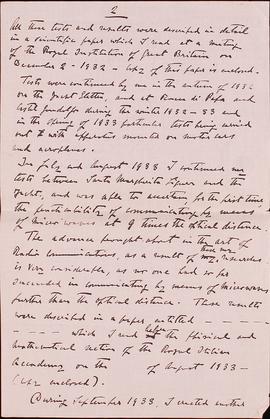 2
All these tests and results were described in detail
in a scientific paper which I read at a meeting
of the Royal Institution of Great Britain on
December 2 - 1932 - copy of this paper is enclosed.
Tests were continued by me in the autumn of 1932
on the Yacht Elettra, and at Rocca di Papa and
Castel Gandolfo during the winter 1932-33 and
in the spring of 1933 particular tests being carried
out with apparatus mounted on motor cars
and aeroplanes.
In July and August 1933 I continued my
tests between Santa Margherita Ligure and the
Yacht, and was able to ascertain for the first time
the practicability of communicating by means
of micro waves at 9 times the optical distance.
The advance brought about in the art of
Radio communications, as a result of these my discoveries
is very considerable, as no one had so far
succeeded in communicating by means of microwaves
further than the optical distance. These results
were described in a paper, entitled
which I read before the physical and
mathematical section of the Royal Italian
Academy on the of August 1933 -
(copy enclosed).
During September 1933, I created another